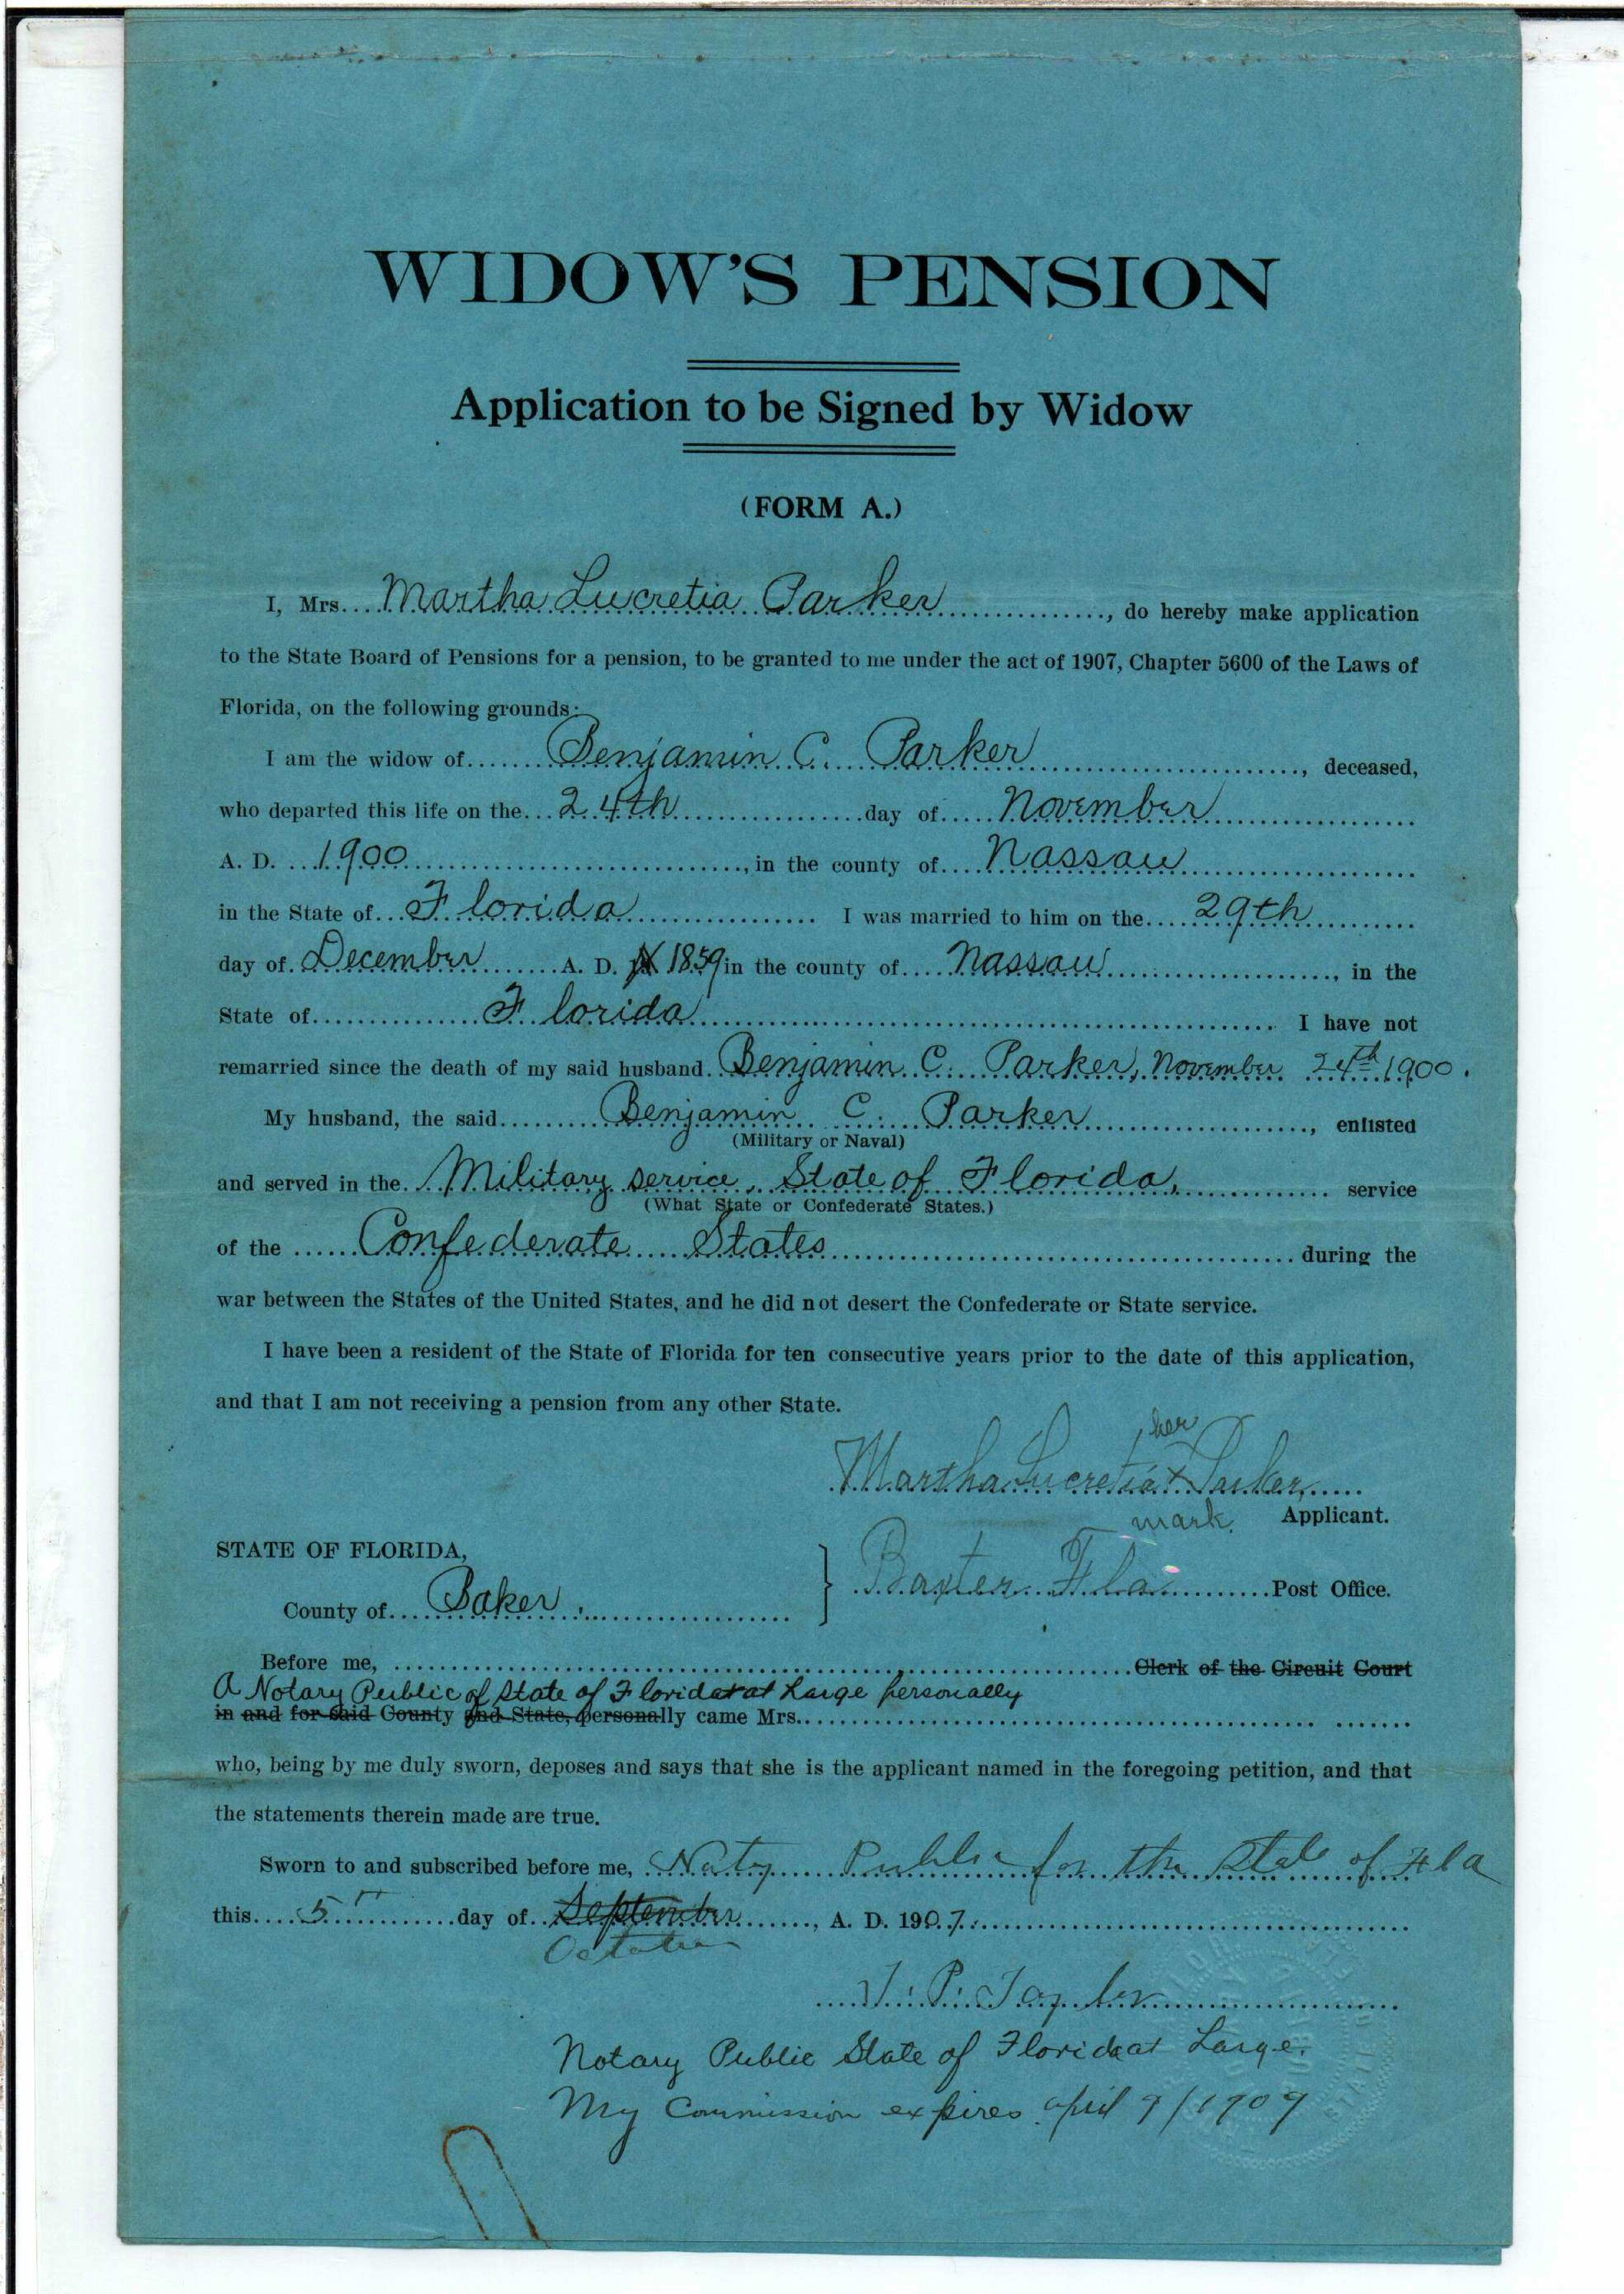 WIDOW'S PENSION
Application to be Signed by Widow
(FORM A.)
I, Mrs. Martha Lucretia Parker, do hereby make application
to the State Board of Pensions for a pension, to be granted to me under the act of 1907, Chapter 5600 of the Laws of
Florida, on the following grounds:
I am the widow of Benjamin C. Parker, deceased,
who departed this life on the 24th day of November
A. D. 1900, in the county of Nassau
in the State of Florida I was married to him on the 29th
day of December A. D. 1859 in the county of Nassau, in the
State of Florida I have not
remarried since the death of my said husband Benjamin C. Parker, November 24th 1900.
My husband, the said Benjamin C. Parker, enlisted
(Military or Naval)
and served in the Military service, State of Florida, service
(What State or Confederate States.)
of the Confederate States during the
war between the States of the United States, and he did not desert the Confederate or State service.
I have been a resident of the State of Florida for ten consecutive years prior to the date of this application,
and that I am not receiving a pension from any other State.
her
Martha Lucretia x Parker
mark. Applicant.
STATE OF FLORIDA,
Baxter Fla Post Office.
County of Baker
Before me, Clerk of the Circuit Court
A Notary Public of State of Florida at Large personally
in and for said County and State, personally came Mrs.
who, being by me duly sworn, deposes and says that she is the applicant named in the foregoing petition, and that
the statements therein made are true.
Sworn to and subscribed before me, Noty Public for the State of Fla
this 5" day of September, A. D. 1907
October
J. P. Taylor
Notary Public State of Florida at Large.
My Commission expires april 9/1909